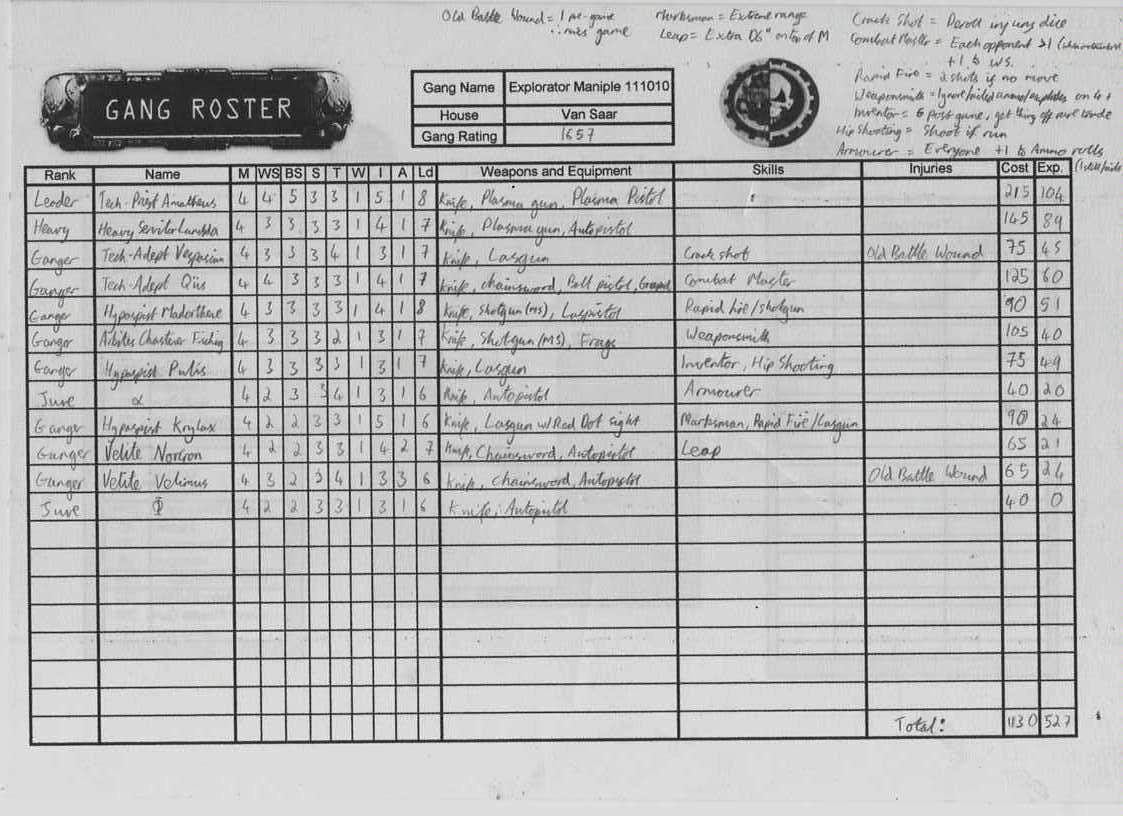 Old Battle Wound = 1 pre-game
∴ miss game
Marksman = Extreme range
Leap = Extra D6" on top of M
Crack Shot = Reroll injury dice
Combat Master = Each opponent >1
+1 to WS.
Rapid Fire = 2 shots if no move
Weaponsmith = Ignore failed ammo/explodes on 4+
Inventor = 6 post game, get thing off rare trade
Hip Shooting = Shoot if run
Armourer = Everyone +1 to Ammo rolls
GANG ROSTER
Gang Name Explorator Maniple 111010
House Van Saar
Gang Rating 1657
Rank Name M WS BS S T W I A Ld Weapons and Equipment Skills Injuries Cost Exp.
Leader Tech-Priest Amatheus 4 4 5 3 3 1 5 1 8 Knife, Plasma gun, Plasma Pistol 215 104
Heavy Heavy Servitor Lambda 4 3 3 3 3 1 4 1 7 Knife, Plasma gun, Autopistol 145 89
Ganger Tech-Adept Vespasian 4 3 3 3 4 1 3 1 7 Knife, Lasgun Crack shot Old Battle Wound 75 45
Ganger Tech-Adept Qiis 4 4 3 3 3 1 4 1 7 Knife, chainsword, Bolt pistol, Combat Master 125 60
Ganger Hypaspist 4 3 3 3 3 1 4 1 8 Knife, Shotgun (MS), Laspistol Rapid fire/shotgun 90 51
Ganger Chastener 4 3 3 3 2 1 3 1 7 Knife, Shotgun (MS), Frags Weaponsmith 105 40
Ganger Hypaspist Pullis 4 3 3 3 3 1 3 1 7 Knife, Lasgun Inventor, Hip Shooting 75 49
Juve α 4 2 3 3 4 1 3 1 6 Knife, Autopistol Armourer 40 20
Ganger Hypaspist Krylax 4 2 2 3 3 1 5 1 6 Knife, Lasgun w/ Red Dot sight Marksman, Rapid Fire/Lasgun 90 24
Ganger Velite Norcron 4 2 2 3 3 1 4 2 7 Knife, Chainsword, Autopistol Leap 65 21
Ganger Velite Velimus 4 3 2 3 4 1 3 3 6 Knife, chainsword, Autopistol Old Battle Wound 65 24
Juve Φ 4 2 2 3 3 1 3 1 6 Knife, Autopistol 40 0
Total: 1130 527